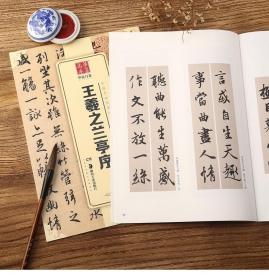 言或自生天趣
事當曲盡人情
聽曲能生萬感
作文不放一絲
王羲之兰亭序
水
列坐其次雖無絲竹管弦之
盛一觴一詠
幽情